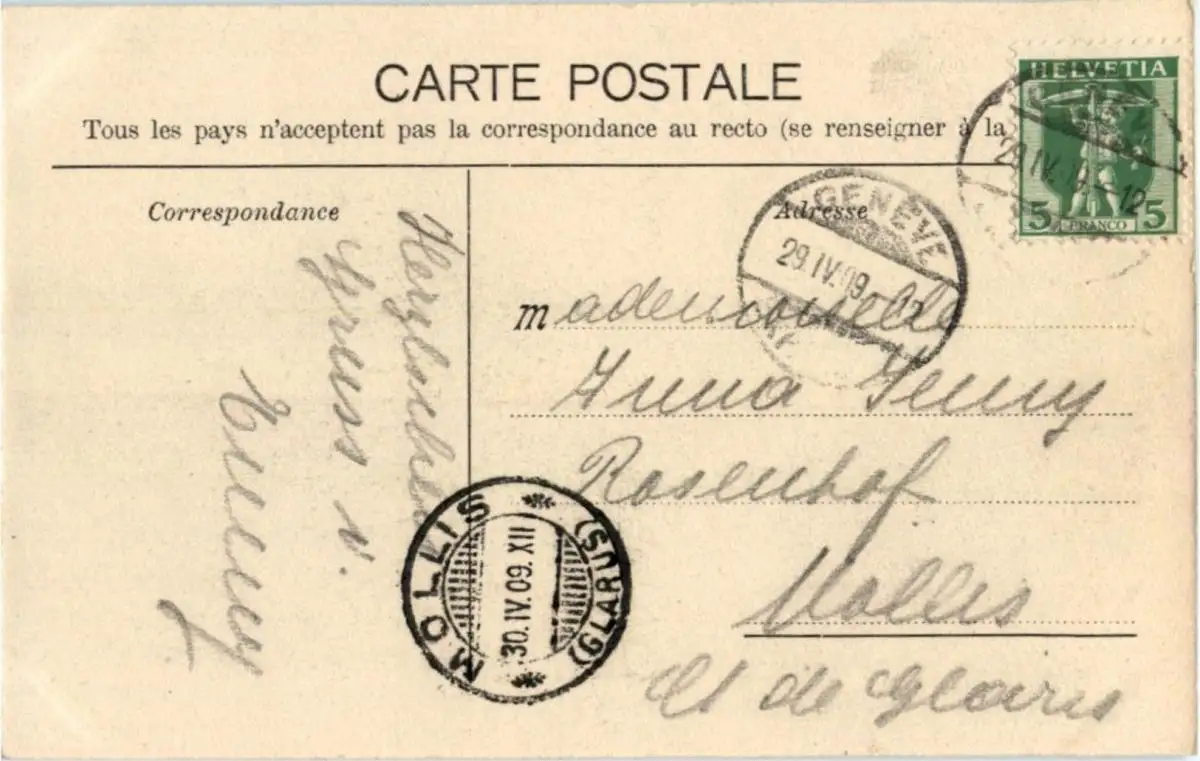 CARTE POSTALE
Tous les pays n'acceptent pas la correspondance au recto (se renseigner à la
HELVETIA
5 FRANCO 5
29.IV.09.-12
Correspondance
Adresse
GENÈVE
29.IV.09. 12
Herzlichen
Gruss v.
Emmy
Mademoiselle
Anna Jenny
Rosenhof
Mollis
Ct de Glaris
MOLLIS
30.IV.09.XII
(GLARUS)